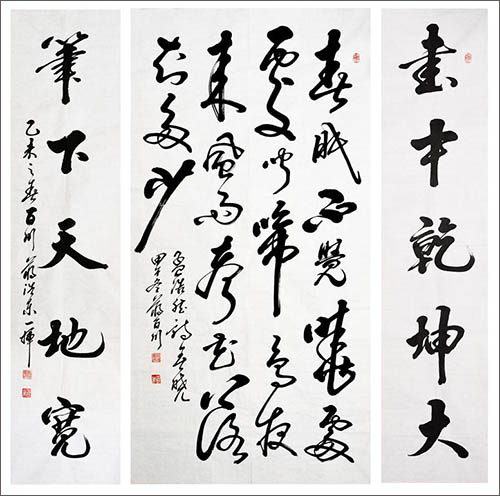 書中乾坤大
春眠不覺曉處
處聞啼鳥夜
來風雨聲花落
知多少
孟浩然詩春曉
甲午冬百川
筆下天地寬
乙未之春百川一揮